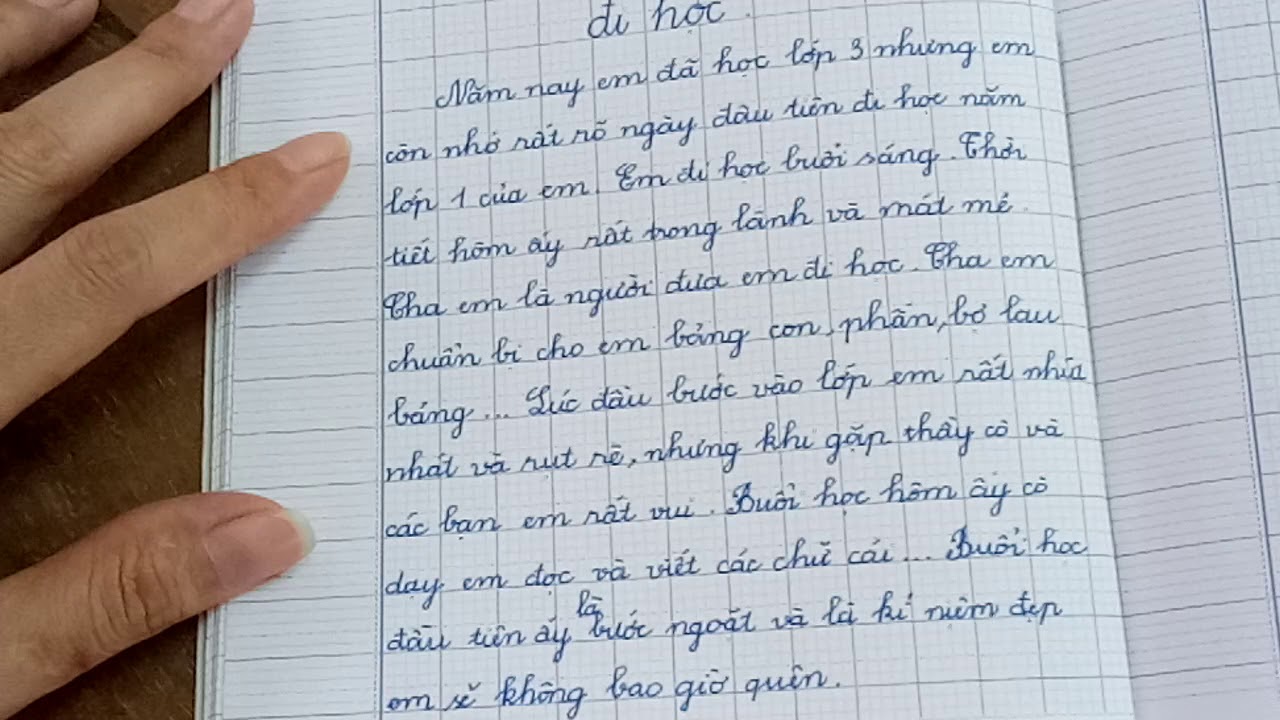 đi học.
Năm nay em đã học lớp 3 nhưng em
còn nhớ rất rõ ngày đầu tiên đi học năm
lớp 1 của em. Em đi học buổi sáng. Thời
tiết hôm ấy rất trong lành và mát mẻ.
Cha em là người đưa em đi học. Cha em
chuẩn bị cho em bảng con, phấn, bọ lau
bảng... Lúc đầu bước vào lớp em rất nhút
nhát và rụt rè, nhưng khi gặp thầy cô và
các bạn em rất vui. Buổi học hôm ấy cô
dạy em đọc và viết các chữ cái... Buổi học
đầu tiên ấy là bước ngoặt và là kỉ niệm đẹp
em sẽ không bao giờ quên.